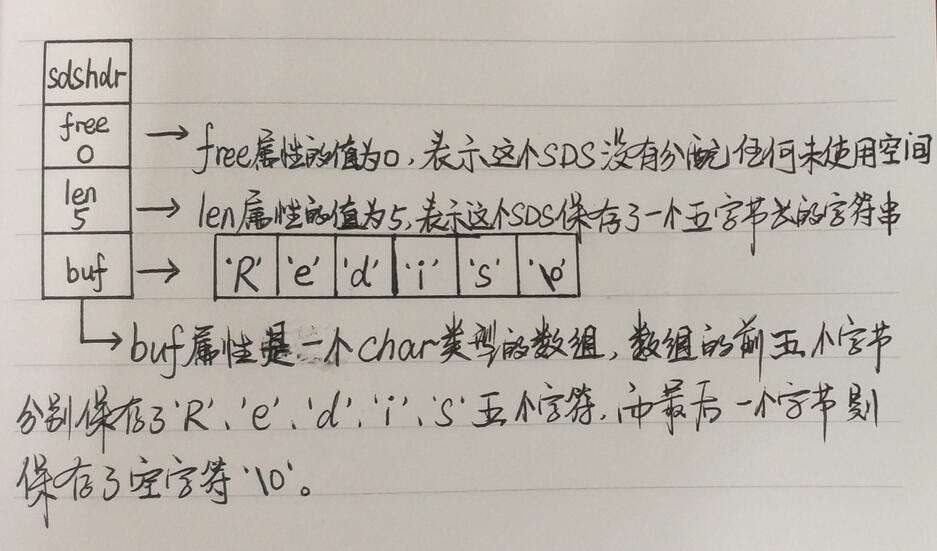 sdshdr
free
0
free属性的值为0,表示这个SDS没有分配任何未使用空间
len
5
len属性的值为5,表示这个SDS保存了一个五字节长的字符串
buf
'R' 'e' 'd' 'i' 's' '\0'
buf属性是一个char类型的数组,数组的前五个字节
分别保存了'R'、'e'、'd'、'i'、's'五个字符,而最后一个字节则
保存了空字符'\0'。